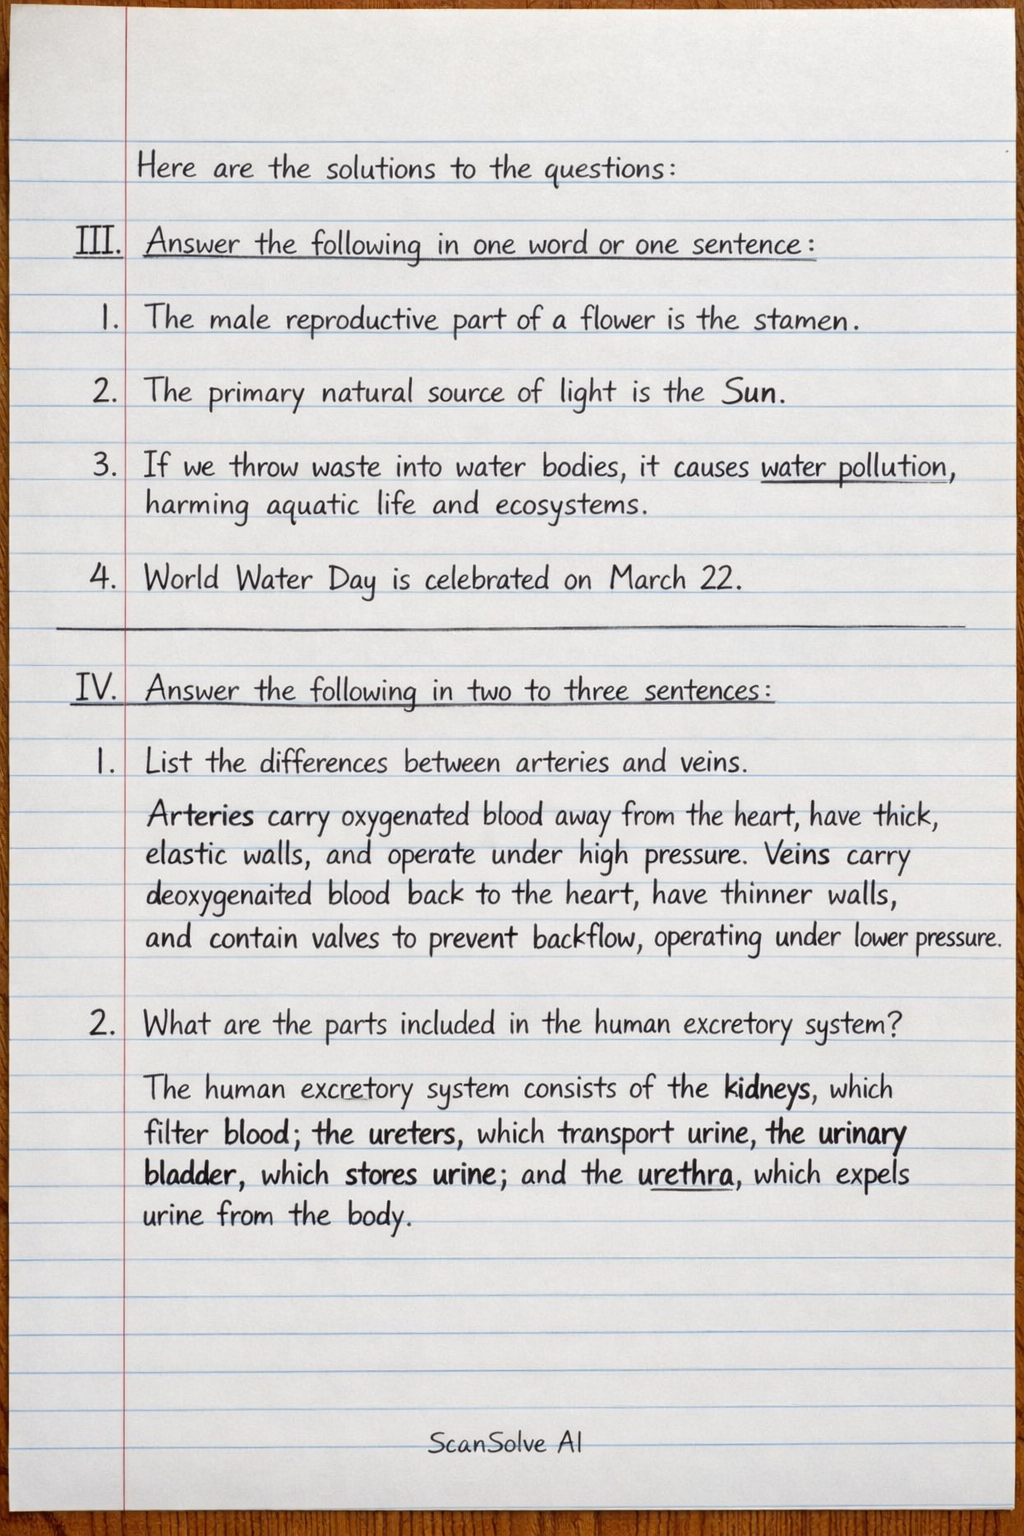 Here are the solutions to the questions:
III. Answer the following in one word or one sentence:
1. The male reproductive part of a flower is the stamen.
2. The primary natural source of light is the Sun.
3. If we throw waste into water bodies, it causes water pollution,
harming aquatic life and ecosystems.
4. World Water Day is celebrated on March 22.
IV. Answer the following in two to three sentences:
1. List the differences between arteries and veins.
Arteries carry oxygenated blood away from the heart, have thick,
elastic walls, and operate under high pressure. Veins carry
deoxygenaited blood back to the heart, have thinner walls,
and contain valves to prevent backflow, operating under lower pressure.
2. What are the parts included in the human excretory system?
The human excretory system consists of the kidneys, which
filter blood; the ureters, which transport urine, the urinary
bladder, which stores urine; and the urethra, which expels
urine from the body.
ScanSolve AI